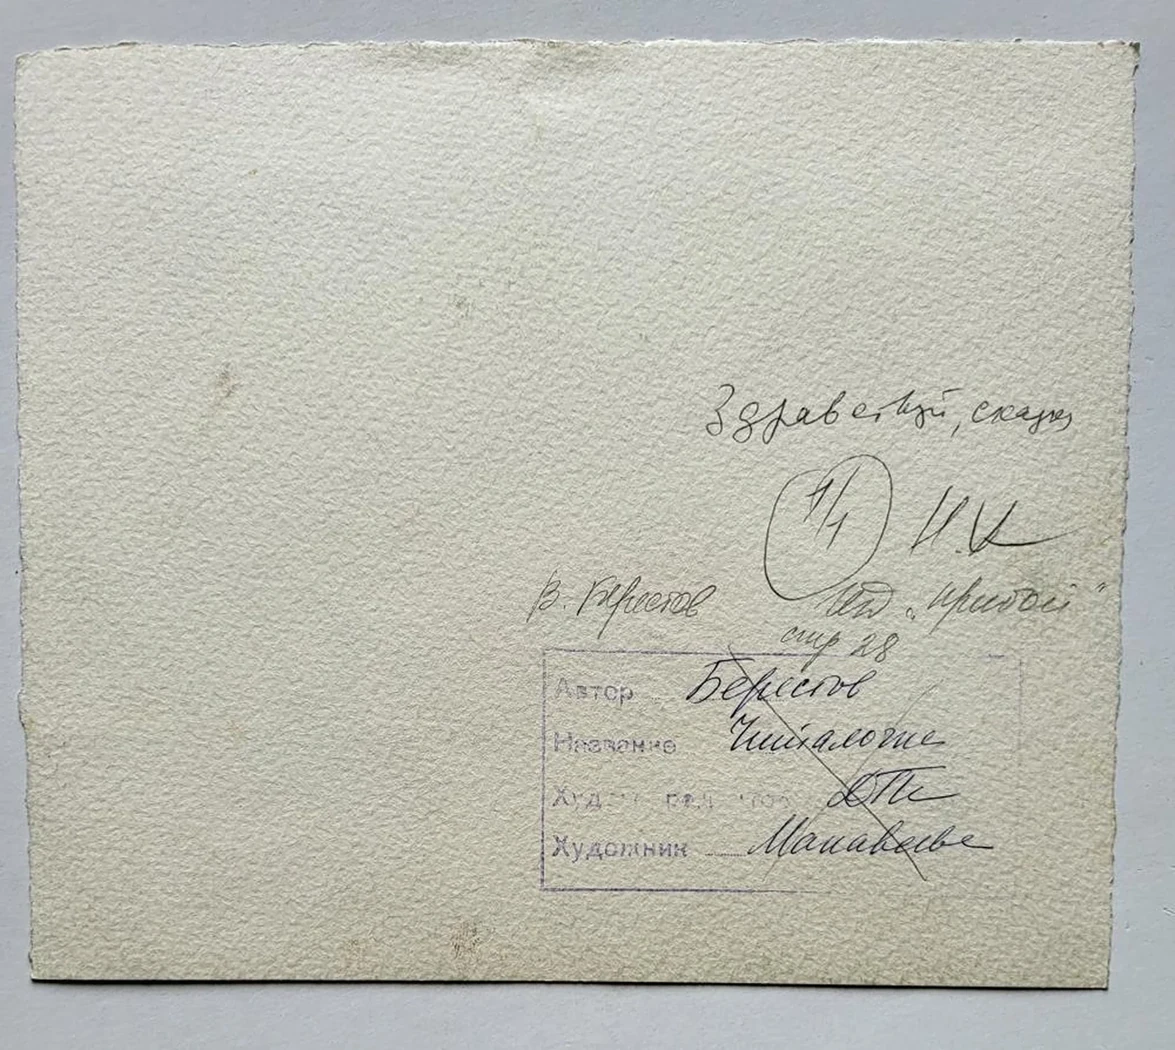 Здравствуй, сказка
1/1 Н.К
В. Берестов изд „Прибой"
стр 28
Автор Берестов
Название Читалочка
Худ
Художник